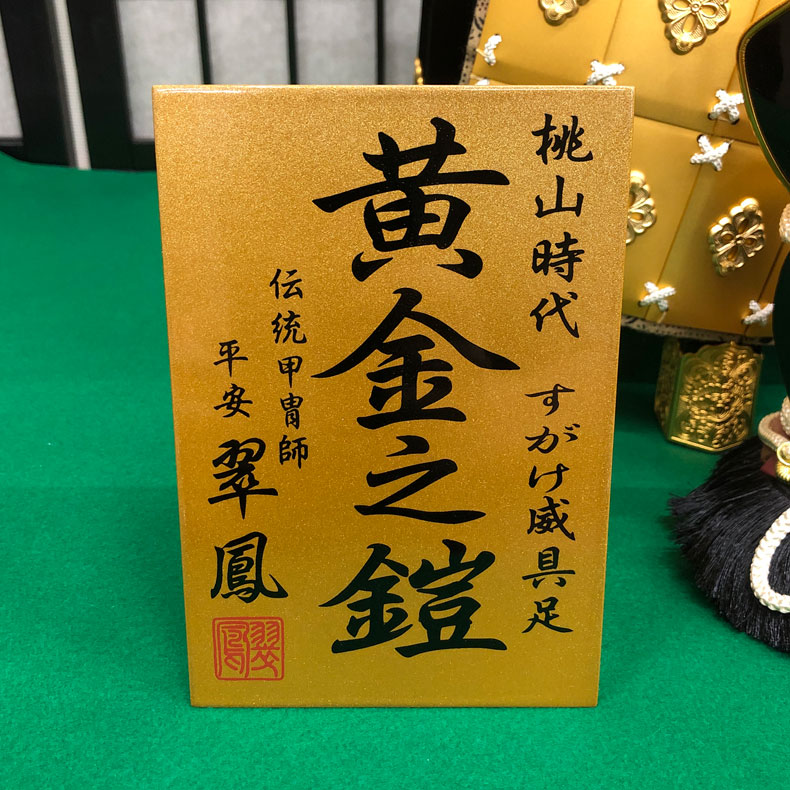 桃山時代 すがけ威具足
黄金之鎧
伝統甲冑師
平安 翠鳳
翠鳳